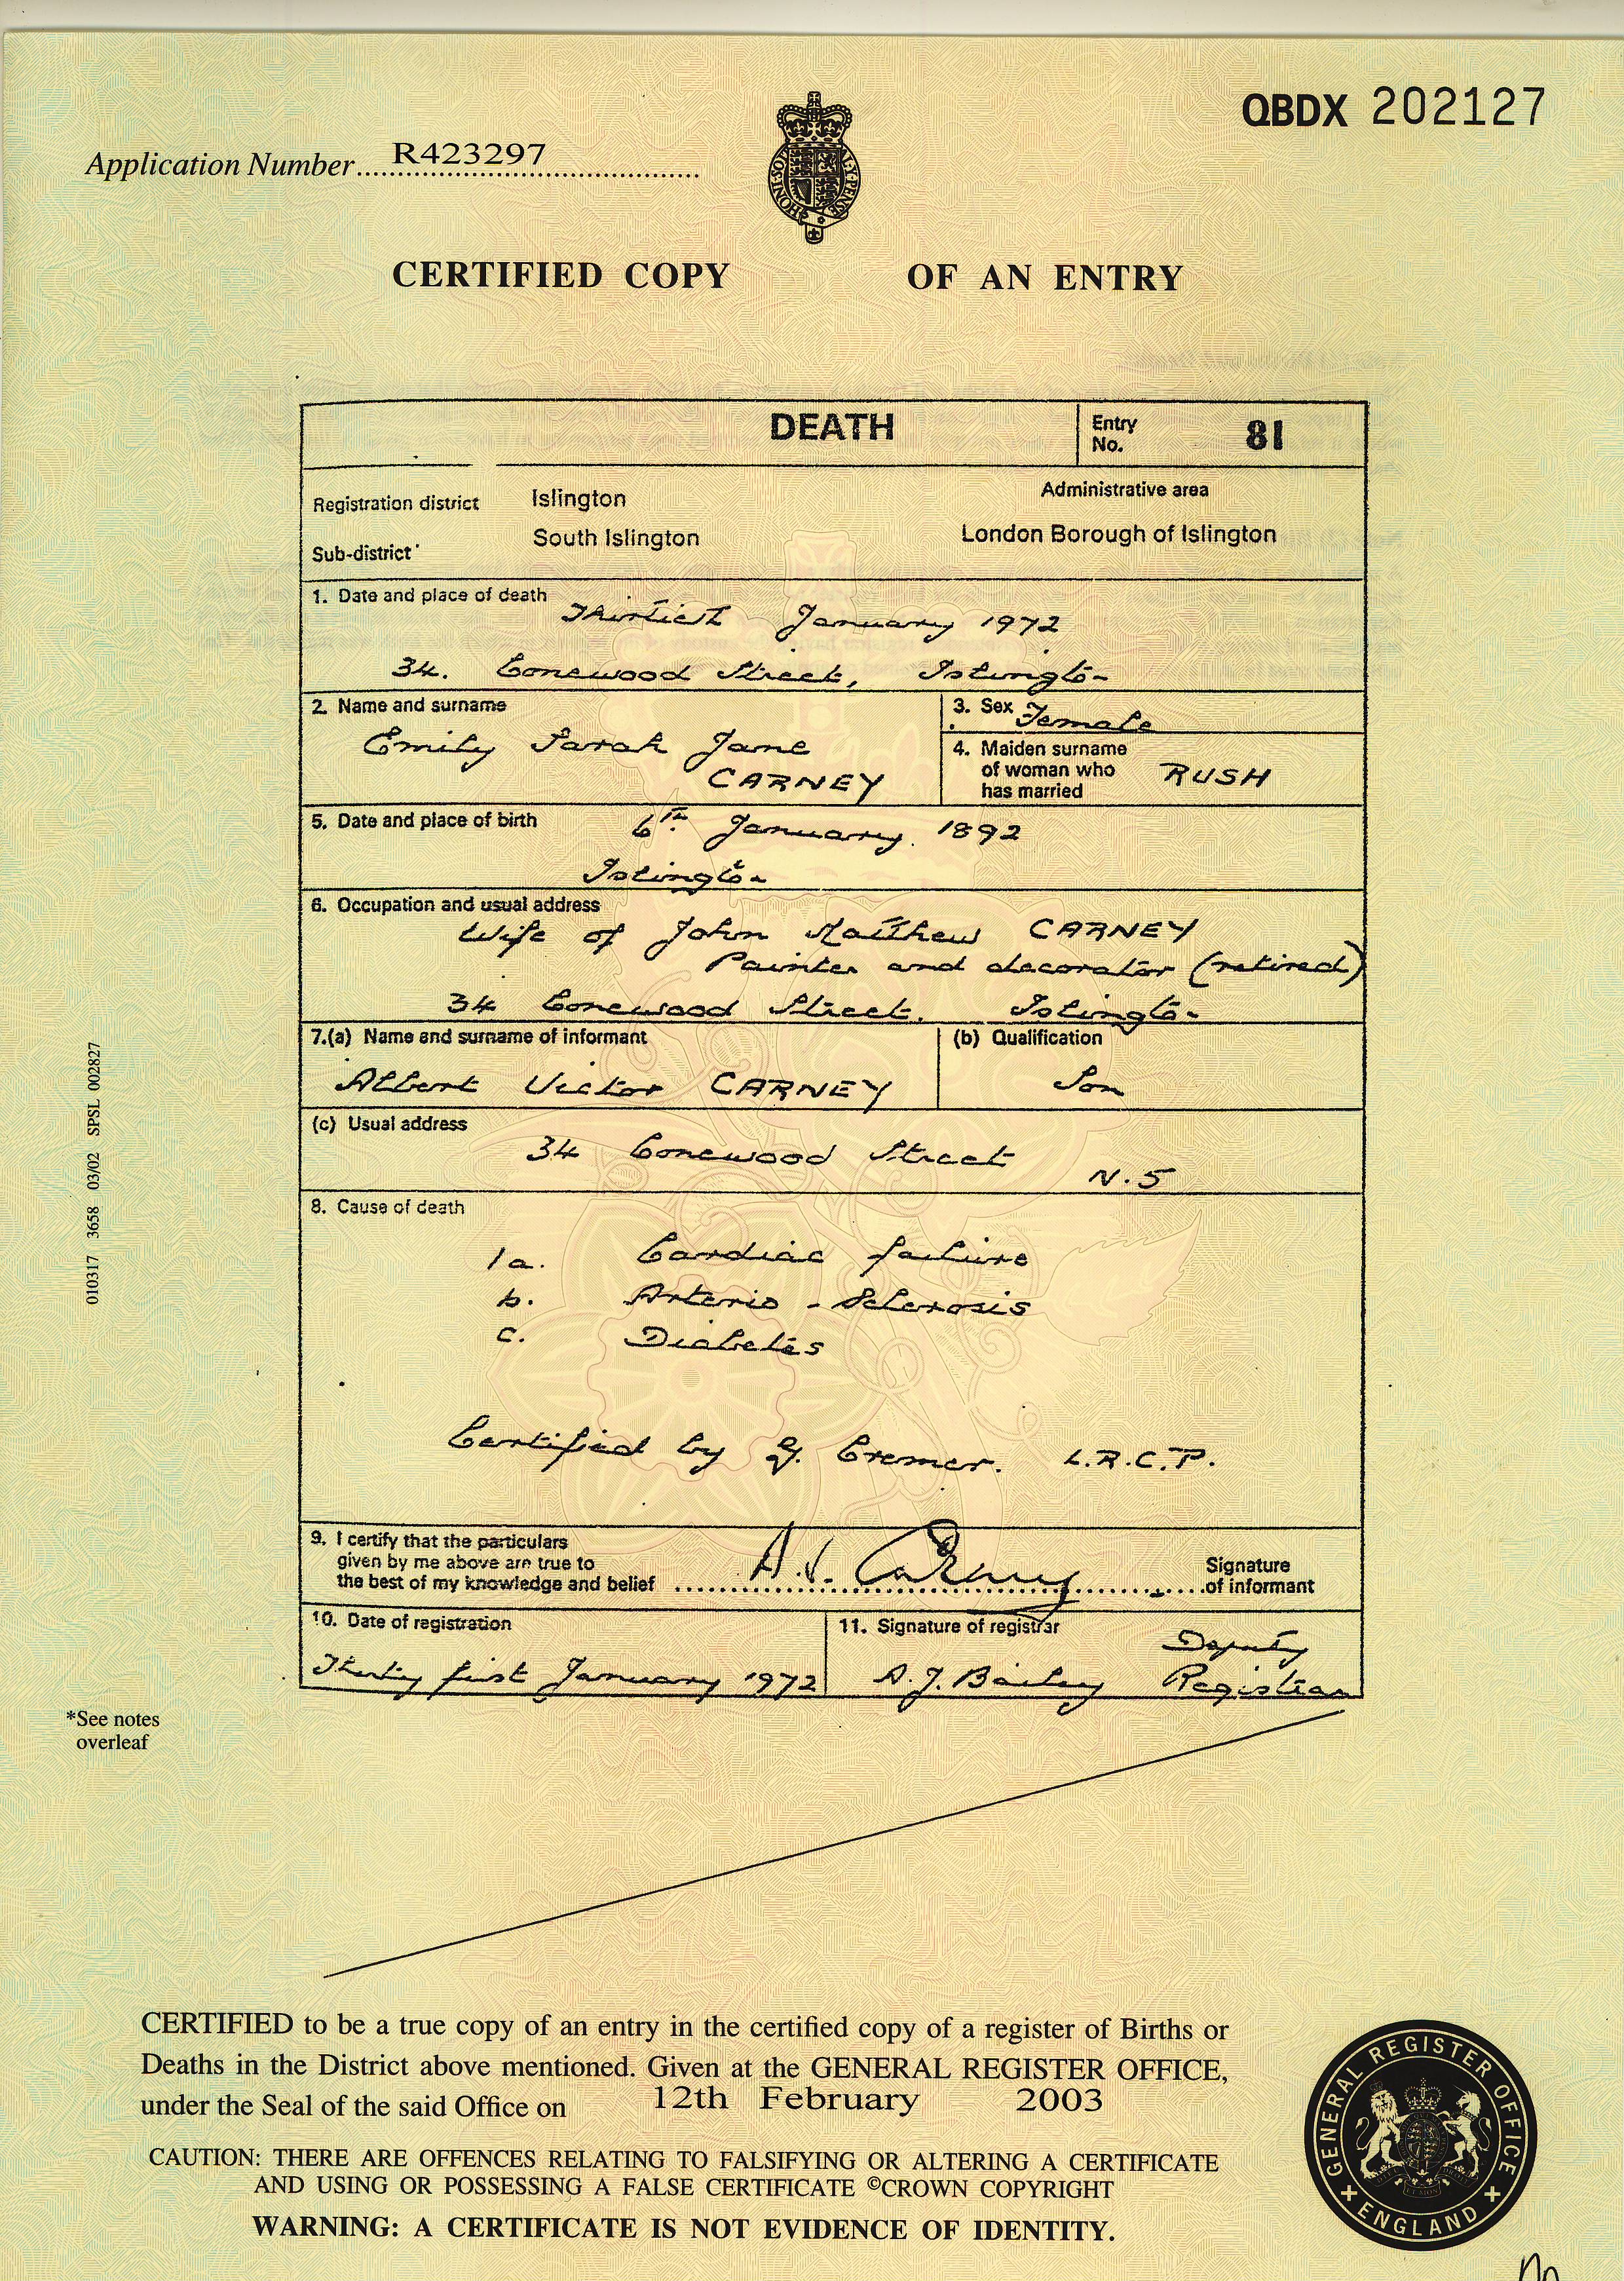 QBDX 202127
Application Number R423297
HONI SOI
AL Y PENSE
CERTIFIED COPY OF AN ENTRY
DEATH
Entry No. 81
Registration district Islington
Administrative area
Sub-district South Islington
London Borough of Islington
1. Date and place of death
Thirtieth January 1972
34. Conewood Street, Islington
2. Name and surname
Emily Sarah Jane
CARNEY
3. Sex Female
4. Maiden surname
of woman who
has married
RUSH
5. Date and place of birth
6th January. 1892
Islington
6. Occupation and usual address
Wife of John Matthew CARNEY
Painter and decorator (retired)
34 Conewood Street. Islington
7.(a) Name and surname of informant
Albert Victor CARNEY
(b) Qualification
Son
(c) Usual address
34 Conewood Street
N.5
8. Cause of death
1a. Cardiac failure
b. Arterio - Sclerosis
c. Diabetes
Certified by G. Cremer. L.R.C.P.
9. I certify that the particulars
given by me above are true to
the best of my knowledge and belief
A.V. Carney
Signature
of informant
10. Date of registration
Thirty first January 1972
11. Signature of registrar
A.J. Bailey
Deputy
Registrar
010317 3658 03/02 SPSL 002827
*See notes
overleaf
CERTIFIED to be a true copy of an entry in the certified copy of a register of Births or
Deaths in the District above mentioned. Given at the GENERAL REGISTER OFFICE,
under the Seal of the said Office on 12th February 2003
CAUTION: THERE ARE OFFENCES RELATING TO FALSIFYING OR ALTERING A CERTIFICATE
AND USING OR POSSESSING A FALSE CERTIFICATE ©CROWN COPYRIGHT
WARNING: A CERTIFICATE IS NOT EVIDENCE OF IDENTITY.
GENERAL REGISTER OFFICE
ENGLAND